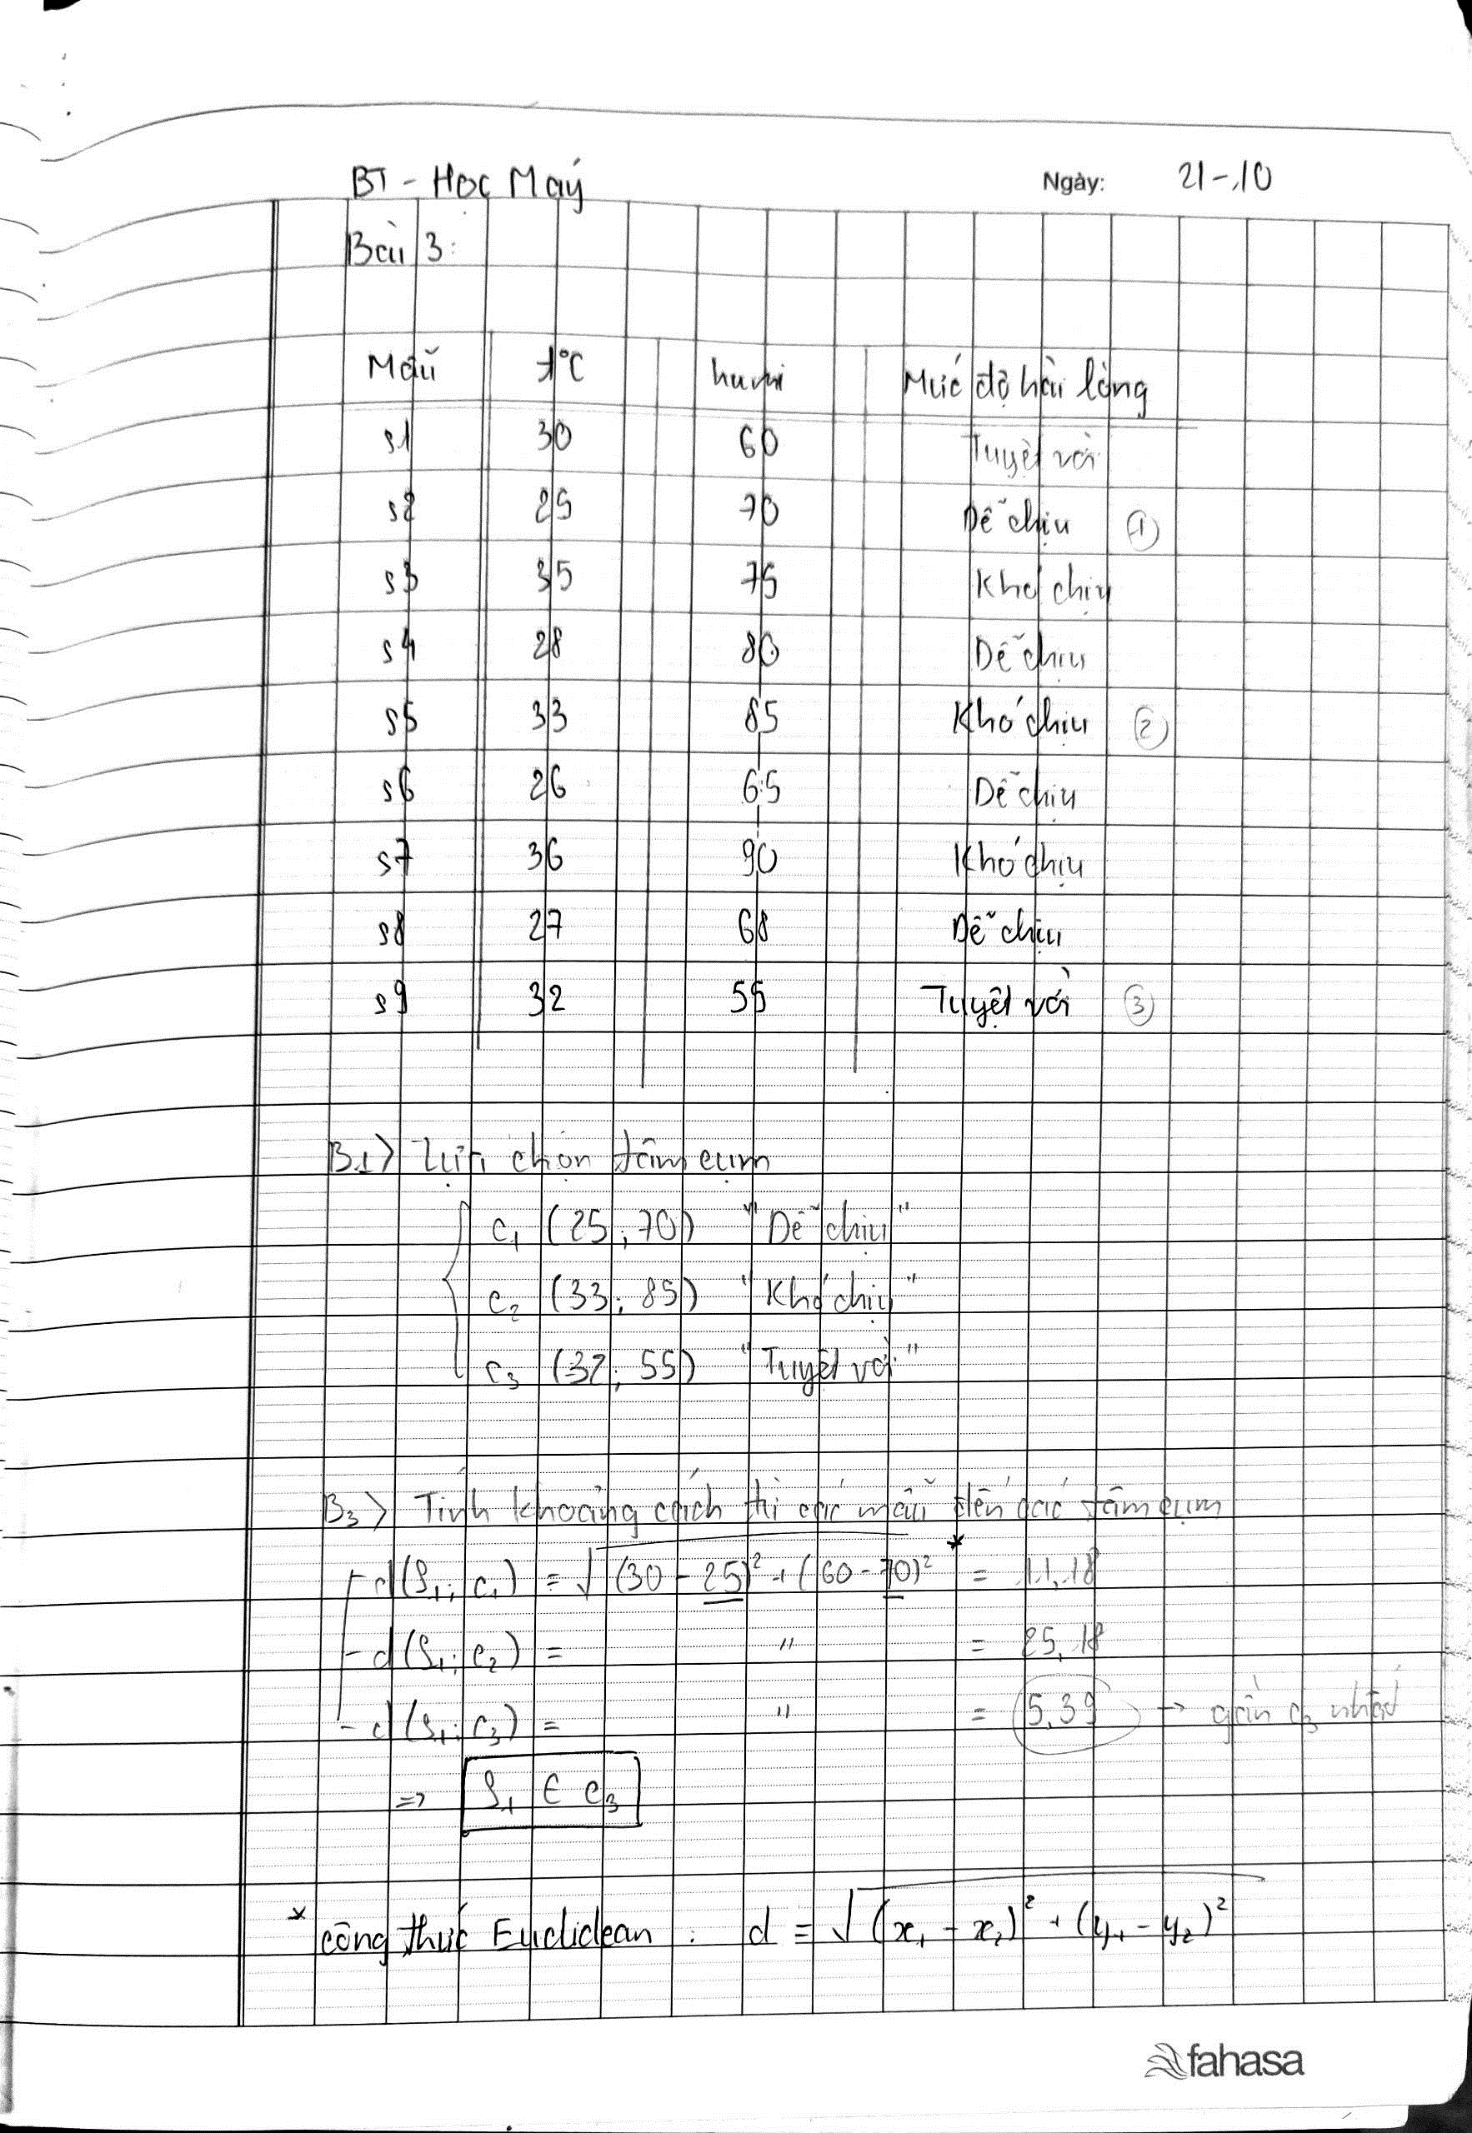 BT - Học Máy
Ngày: 21-10
Bài 3:
Mẫu t°C humi Mức độ hài lòng
s1 30 60 Tuyệt vời
s2 25 70 Dễ chịu (1)
s3 35 75 Khó chịu
s4 28 80 Dễ chịu
s5 33 85 Khó chịu (2)
s6 26 65 Dễ chịu
s7 36 90 Khó chịu
s8 27 68 Dễ chịu
s9 32 55 Tuyệt vời (3)
B1> Lựa chọn tâm cụm
c₁ (25; 70) "Dễ chịu"
c₂ (33; 85) "Khó chịu"
c₃ (32; 55) "Tuyệt vời"
B3> Tính khoảng cách từ các mẫu đến các tâm cụm
- d(S₁; c₁) = √((30 - 25)² + (60 - 70)²) * = 11,18
- d(S₁; c₂) = " = 25,18
- d(S₁; c₃) = " = 5,39 → gần c₃ nhất
=> S₁ ∈ c₃
* công thức Euclidean : d = √((x₁ - x₂)² + (y₁ - y₂)²)
fahasa